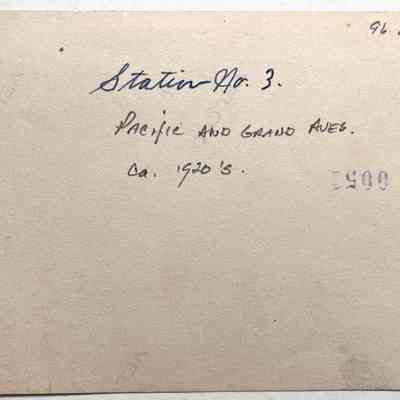 96.
Station No. 3.
Pacific and Grand Aves.
Ca. 1920's.
0051